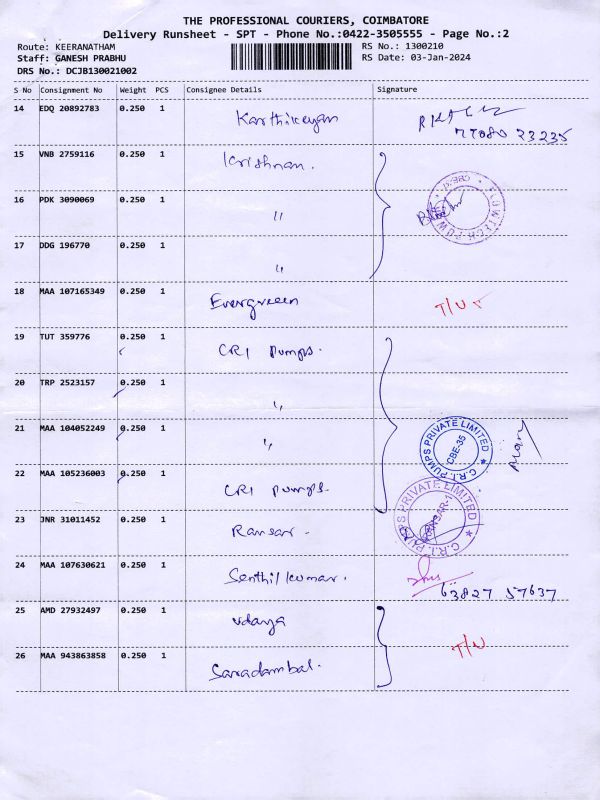 THE PROFESSIONAL COURIERS, COIMBATORE
Delivery Runsheet - SPT - Phone No.:0422-3505555 - Page No.:2
Route: KEERANATHAM
RS No.: 1300210
Staff: GANESH PRABHU
RS Date: 03-Jan-2024
DRS No.: DCJB130021002
S No Consignment No Weight PCS Consignee Details Signature
14 EDQ 20892783 0.250 1 Karthikeyan
77080 23235
15 VNB 2759116 0.250 1 Krishnan.
16 PDK 3090069 0.250 1 "
17 DDG 196770 0.250 1 "
18 MAA 107165349 0.250 1 Evergreen T/U
19 TUT 359776 0.250 1 CRI Pumps.
20 TRP 2523157 0.250 1 "
21 MAA 104052249 0.250 1 "
C.R.I. PUMPS PRIVATE LIMITED ★
CBE-35
22 MAA 105236003 0.250 1 CRI Pumps.
C.R.I. PUMPS PRIVATE LIMITED ★
23 JNR 31011452 0.250 1 Ransar.
24 MAA 107630621 0.250 1 Senthil kumar.
63827 57637
25 AMD 27932497 0.250 1 udaya
T/U
26 MAA 943863858 0.250 1 Saradambal.